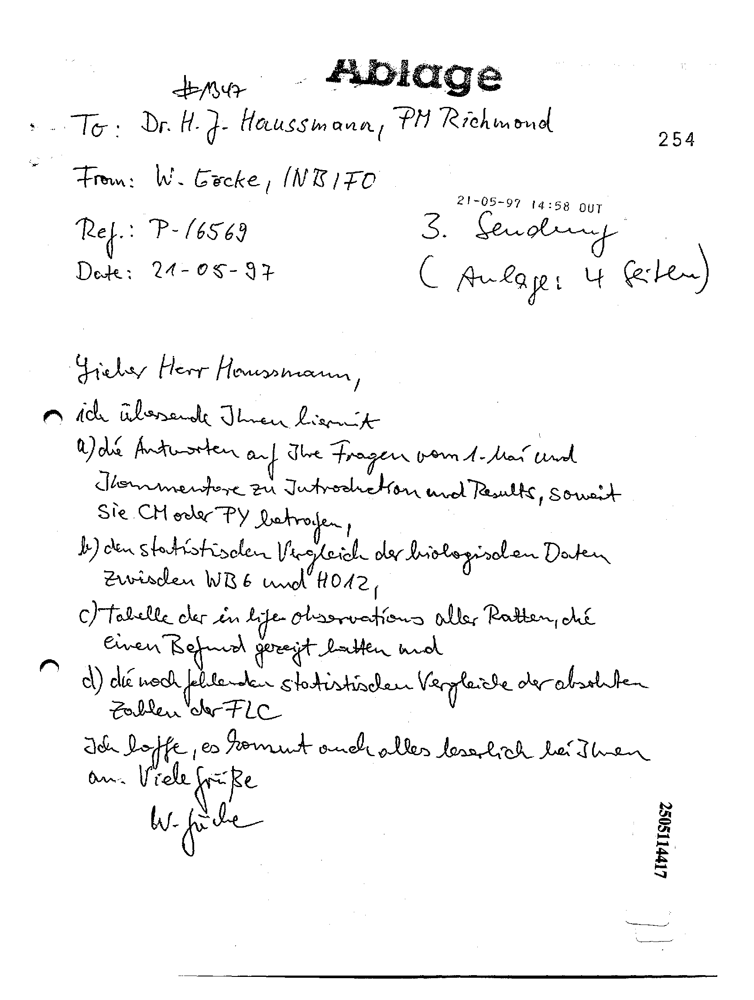 Ablage
#1347
To: Dr. H. J. Haussmann, PM Richmond
254
From: W. Göcke, INBIFO
21-05-97 14:58 OUT
Ref.: P-16569
3. Sendung
Date: 21-05-97
(Anlage: 4 Seiten)
Lieber Herr Haussmann,
ich übersende Ihnen hiermit
a) die Antworten auf Ihre Fragen vom 1. Mai und
Kommentare zu Introduction und Results, soweit
sie CM oder PY betrafen,
b) den statistischen Vergleich der biologischen Daten
zwischen WB6 und HO12,
c) Tabelle der in life observations aller Ratten, die
einen Befund gezeigt hatten und
d) die noch fehlenden statistischen Vergleiche der absoluten
Zahlen der FLC
Ich hoffe, es kommt auch alles leserlich bei Ihnen
an. Viele Grüße
W. Göcke
2505114417